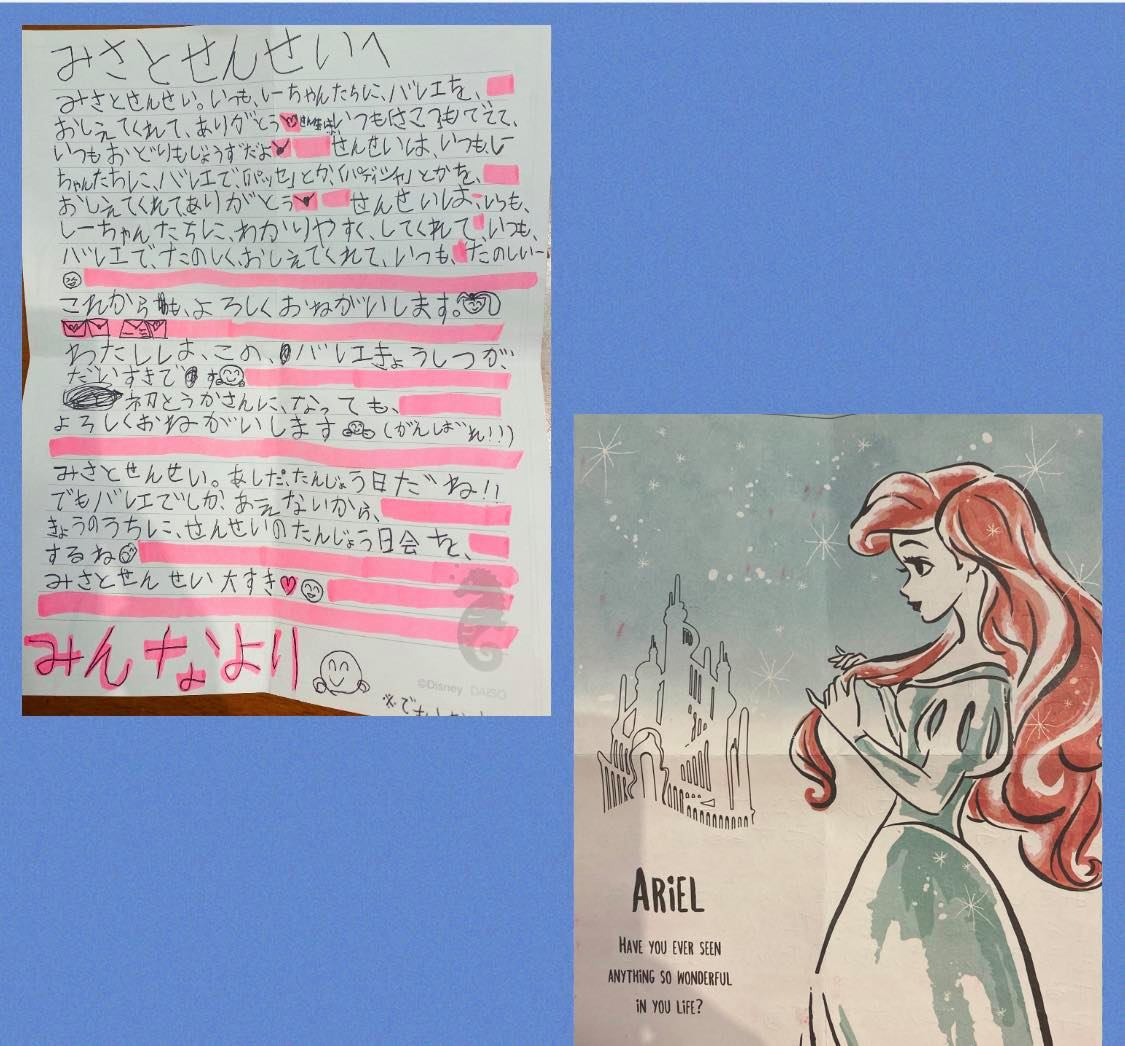 みさとせんせいへ
みさとせんせい。いつも、しーちゃんたちに、バレエを、
おしえてくれて、ありがとう いつも
いつもおどりもじょうずだよ せんせいは、いつも、しー
ちゃんたちに、バレエで、「パッセ」とか、「パディシャ」とかを、
おしえてくれてありがとう せんせいは、いつも、
しーちゃんたちに、わかりやすく、してくれて、いつも、
バレエで、たのしく、おしえてくれて、いつも、たのしいー
これからも、よろしくおねがいします。
わたしは、この、バレエきょうしつが、
だいすきです
になっても、
よろしくおねがいします (がんばれ!!!)
みさとせんせい。あしだ、たんじょう日だね!!
でもバレエでしか、あえないから、
きょうのうちに、せんせいのたんじょう日会を、
するね
みさとせんせい大すき♥
みんなより
©Disney DAISO
ARIEL
HAVE YOU EVER SEEN
ANYTHING SO WONDERFUL
IN YOU LIFE?